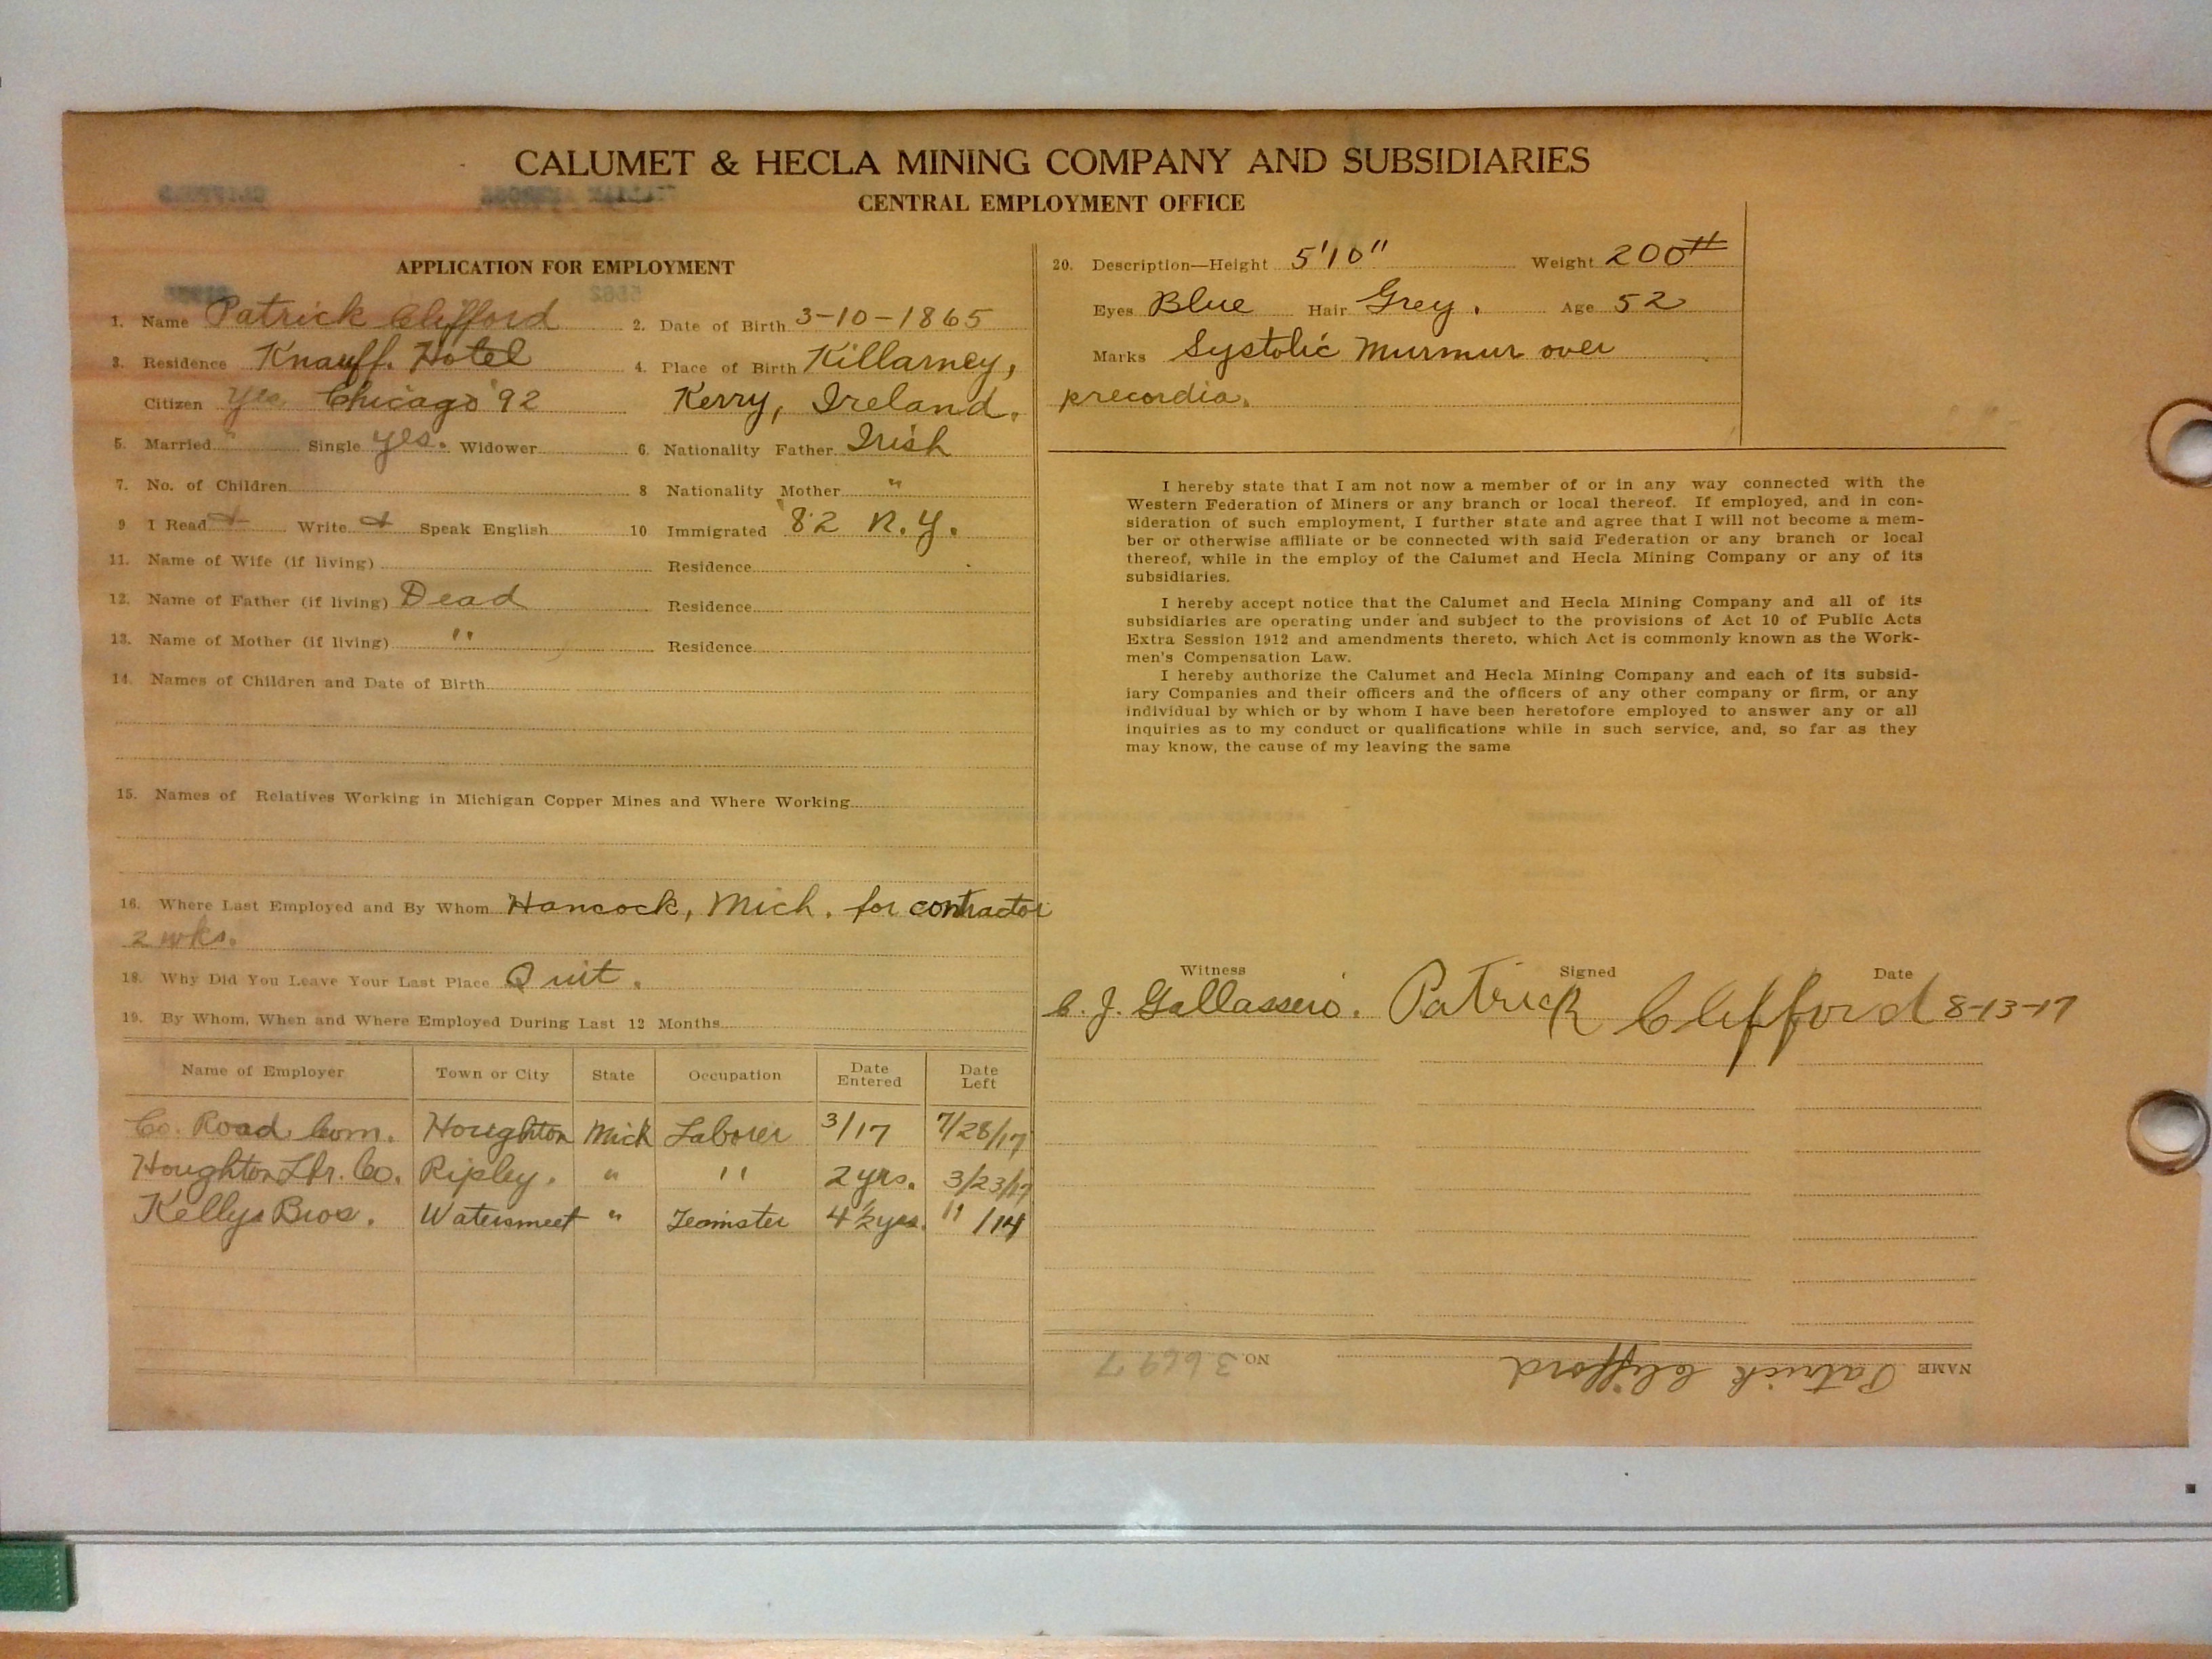 CALUMET & HECLA MINING COMPANY AND SUBSIDIARIES
CENTRAL EMPLOYMENT OFFICE
APPLICATION FOR EMPLOYMENT
1. Name Patrick Clifford 2. Date of Birth 3-10-1865
3. Residence Knauff. Hotel 4. Place of Birth Killarney,
Citizen Yes Chicago '92 Kerry, Ireland.
5. Married Single yes. Widower 6. Nationality Father Irish
7. No. of Children 8 Nationality Mother "
9 I Read Write Speak English 10 Immigrated '82 N.Y.
11. Name of Wife (if living) Residence
12. Name of Father (if living) Dead Residence
13. Name of Mother (if living) " Residence
14. Names of Children and Date of Birth
15. Names of Relatives Working in Michigan Copper Mines and Where Working
16. Where Last Employed and By Whom Hancock, Mich. for contractor
2 wks.
18. Why Did You Leave Your Last Place Quit.
19. By Whom, When and Where Employed During Last 12 Months
Name of Employer Town or City State Occupation Date Entered Date Left
Co. Road Com. Houghton Mich Laborer 3/17 7/28/17
Houghton Lbr. Co. Ripley. " " 2 yrs. 3/23/17
Kellys Bros. Watersmeet " Teamster 4 1/2 yrs. 11/14
20. Description—Height 5'10" Weight 200#
Eyes Blue Hair Grey. Age 52
Marks Systolic murmur over
precordia.
I hereby state that I am not now a member of or in any way connected with the
Western Federation of Miners or any branch or local thereof. If employed, and in con-
sideration of such employment, I further state and agree that I will not become a mem-
ber or otherwise affiliate or be connected with said Federation or any branch or local
thereof, while in the employ of the Calumet and Hecla Mining Company or any of its
subsidiaries.
I hereby accept notice that the Calumet and Hecla Mining Company and all of its
subsidiaries are operating under and subject to the provisions of Act 10 of Public Acts
Extra Session 1912 and amendments thereto, which Act is commonly known as the Work-
men's Compensation Law.
I hereby authorize the Calumet and Hecla Mining Company and each of its subsid-
iary Companies and their officers and the officers of any other company or firm, or any
individual by which or by whom I have been heretofore employed to answer any or all
inquiries as to my conduct or qualifications while in such service, and, so far as they
may know, the cause of my leaving the same
Witness Signed Date
C. J. Gallassero. Patrick Clifford 8-13-17
NAME Patrick Clifford NO. 36697